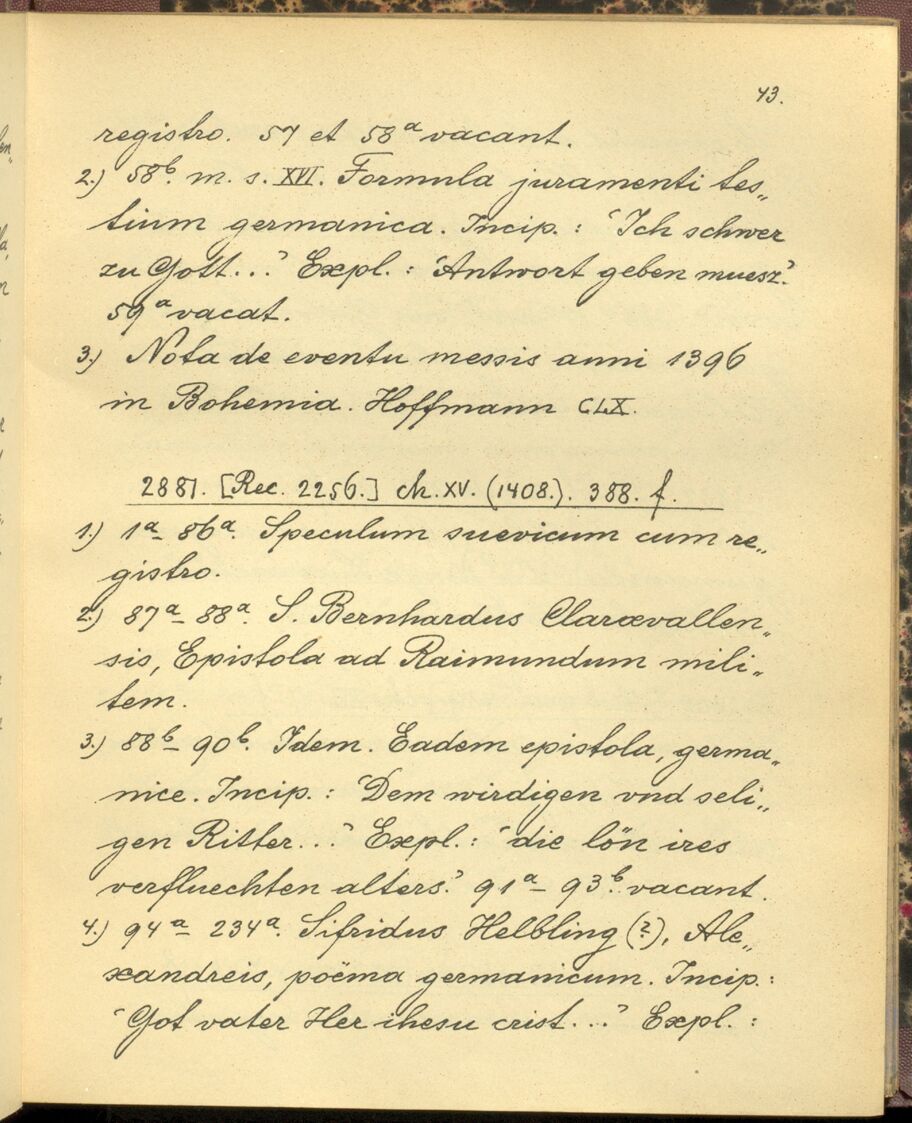 43.
registro. 57 et 58ª vacant.
2.) 58ᵇ. m. s. XVI. Formula juramenti tes„
tium germanica. Incip.: ‘Ich schwer
zu Gott...’ Expl.: ‘Antwort geben muesz’.
59ª vacat.
3.) Nota de eventu messis anni 1396
in Bohemia. Hoffmann CLX.
2881. [Rec. 2256.] ch. XV. (1408.). 388. f.
1.) 1ª–86ª. Speculum suevicum cum re„
gistro.
2.) 87ª–88ª. S. Bernhardus Claraevallen„
sis, Epistola ad Raimundum mili„
tem.
3.) 88ᵇ–90ᵇ. Idem. Eadem epistola, germa„
nice. Incip.: ‘Dem wirdigen vnd seli„
gen Ritter...’ Expl.: ‘die lön ires
verfluechten alters’. 91ª–93ᵇ. vacant.
4.) 94ª–234ª. Sifridus Helbling (?), Ale„
xandreis, poëma germanicum. Incip:
‘Got vater Her ihesu crist...’ Expl.: